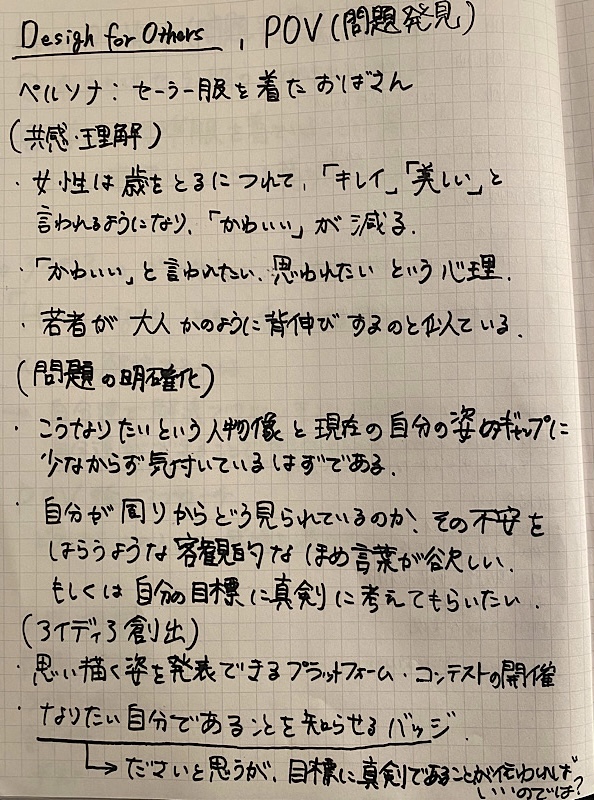 Design for Others , POV(問題発見)
ペルソナ:セーラー服を着たおばさん
(共感・理解)
・女性は歳をとるにつれて、「キレイ」「美しい」と
言われるようになり、「かわいい」が減る.
・「かわいい」と言われたい、思われたいという心理.
・若者が大人かのように背伸びするのと似ている.
(問題の明確化)
・こうなりたいという人物像と現在の自分の姿のギャップに
少なからず気付いているはずである.
・自分が周りからどう見られているのか、その不安を
はらうような客観的なほめ言葉が欲しい.
もしくは自分の目標に真剣に考えてもらいたい.
(アイディア創出)
・思い描く姿を発表できるプラットフォーム・コンテストの開催
・なりたい自分であることを知らせるバッジ.
→ださいと思うが、目標に真剣であることが伝わればいいのでは?